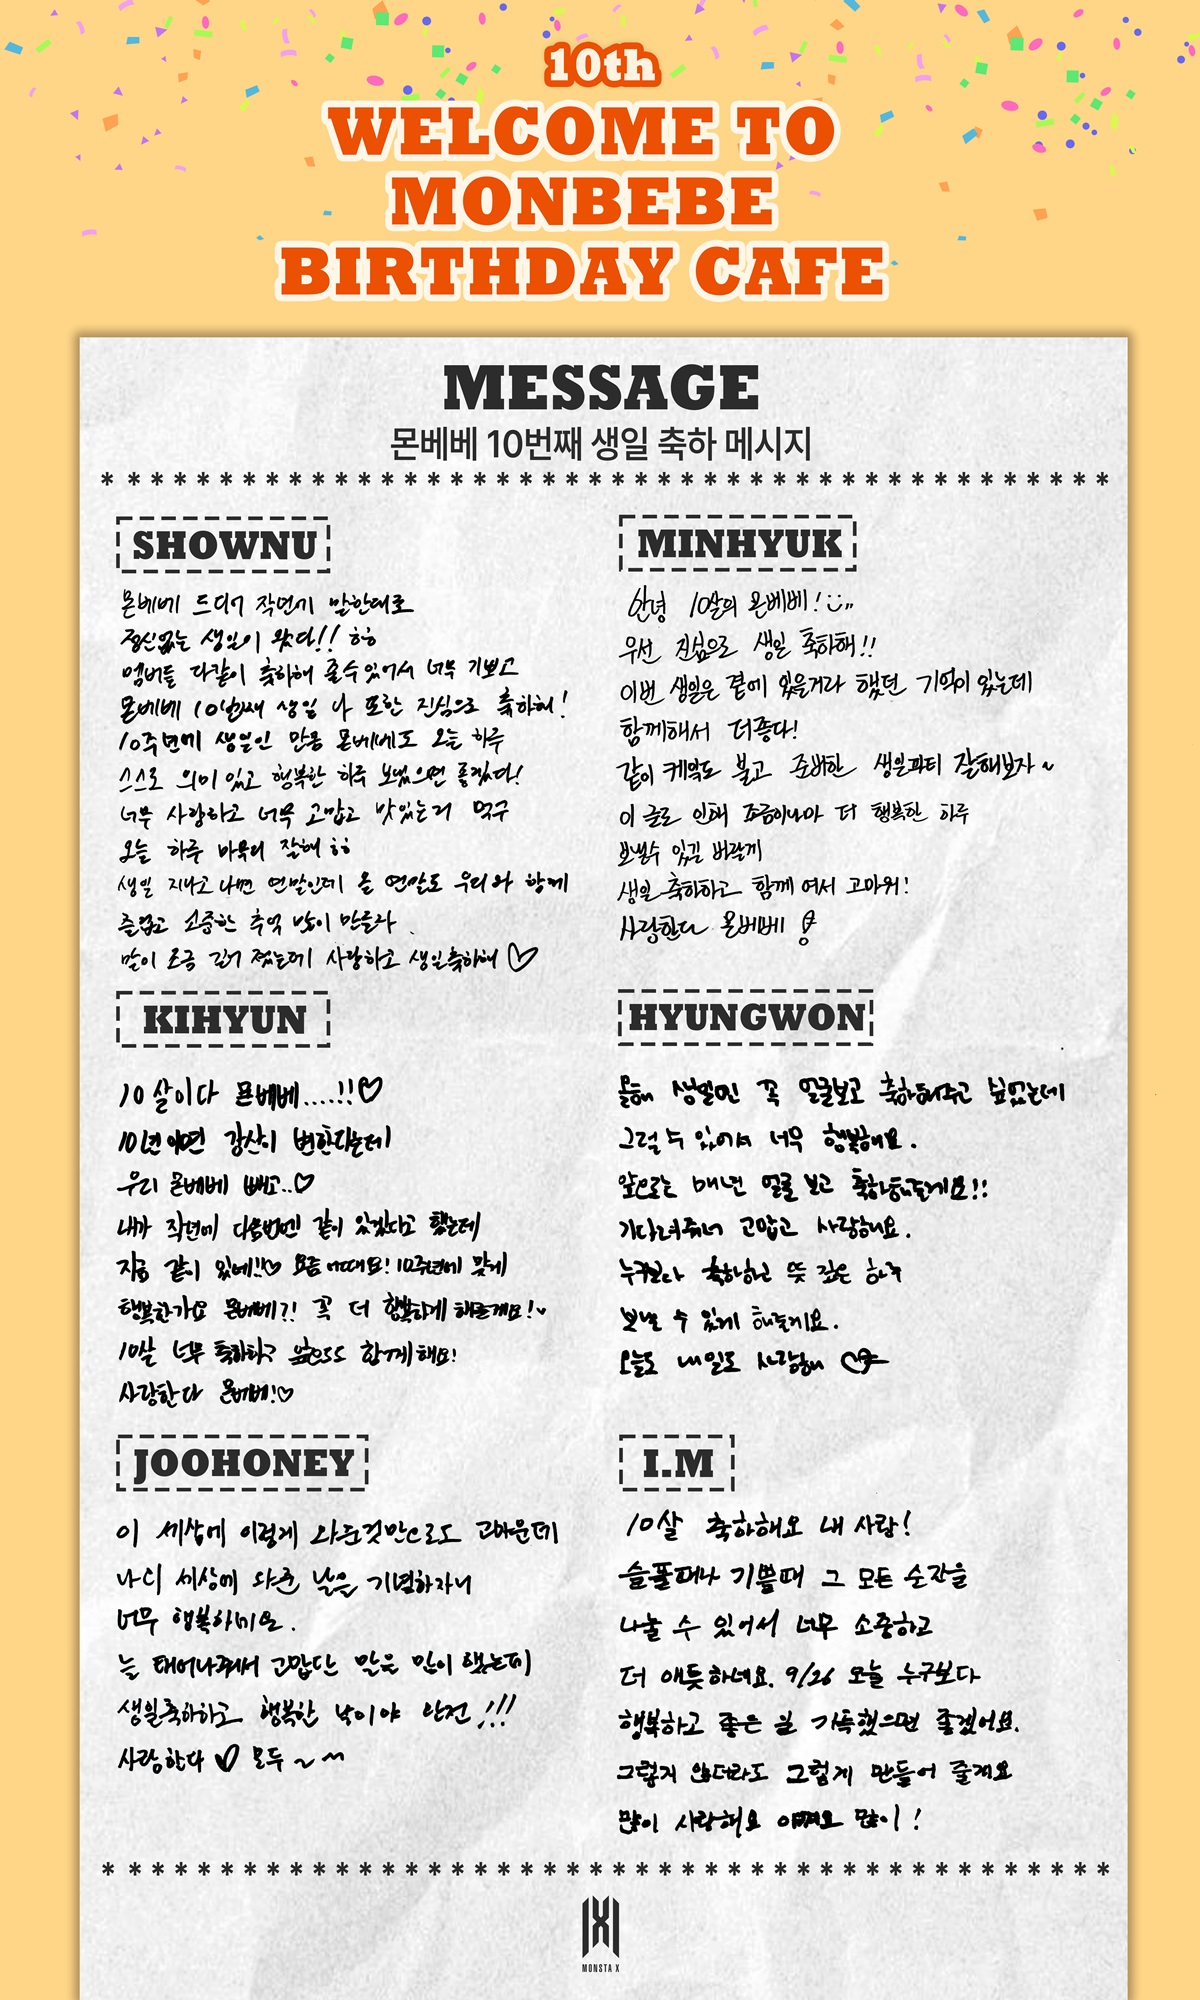 10th
WELCOME TO
MONBEBE
BIRTHDAY CAFE
MESSAGE
몬베베 10번째 생일 축하 메시지
* * * * * * * * * * * * * * * * * * * * * * * * * * * * * * * * * * * * * * *
SHOWNU
몬베베 드디어 작년에 말한대로
정신없는 생일이 왔다!! ㅎㅎ
멤버들 다같이 축하해 줄수있어서 너무 기쁘고
몬베베 10번째 생일 나 또한 진심으로 축하해!
10주년에 생일인 만큼 몬베베도 오늘 하루
스스로 의미있고 행복한 하루 보냈으면 좋겠다!
너무 사랑하고 너무 고맙고 맛있는거 먹구
오늘 하루 마무리 잘해 ㅎㅎ
생일 지나고 나면 연말인데 올 연말도 우리와 함께
즐겁고 소중한 추억 많이 만들자.
말이 조금 길어 졌는데 사랑하고 생일축하해 ♡
MINHYUK
안녕 10살의 몬베베!
우선 진심으로 생일 축하해!!
이번 생일은 곁에 있을거라 했던 기억이 있는데
함께해서 더좋다!
같이 케익도 불고 준비한 생일파티 잘해보자~
이 글로 인해 조금이나마 더 행복한 하루
보낼수 있길 바랄게
생일 축하하고 함께 여서 고마워!
사랑한다 몬베베
KIHYUN
10살이다 몬베베....!!♡
10년이면 강산이 변한다는데
우리 몬베베 빼고..♡
내가 작년에 다음번엔 같이 있겠다고 했는데
지금 같이 있네!!♡ 요즘 어때요! 10주년에 맞게
행복한가요 몬베베?! 꼭 더 행복하게 해줄게요!
10살 너무 축하하구 앞으로도 함께해요!
사랑한다 몬베베!♡
HYUNGWON
올해 생일엔 꼭 얼굴보고 축하해주고 싶었는데
그럴 수 있어서 너무 행복해요.
앞으로는 매년 얼굴 보고 축하해줄게요!!
기다려줘서 고맙고 사랑해요.
누구보다 축하하고 뜻 깊은 하루
보낼 수 있게 해줄게요.
오늘도 내일도 사랑해
JOOHONEY
이 세상에 이렇게 와준것만으로도 고마운데
나디 세상에 와준 날은 기념하자니
너무 행복하네요.
늘 태어나줘서 고맙단 말을 많이 했는데
생일축하하고 행복한 낙이야 완전!!!
사랑한다 ♡ 모두~
I.M
10살 축하해요 내 사람!
슬플때나 기쁠때 그 모든 순간을
나눌 수 있어서 너무 소중하고
더 애틋하네요. 9/26 오늘 누구보다
행복하고 좋은 일 가득했으면 좋겠어요.
그렇지 않더라도 그렇게 만들어 줄게요
많이 사랑해요 많이!
* * * * * * * * * * * * * * * * * * * * * * * * * * * * * * * * * * * * * * *
MONSTA X